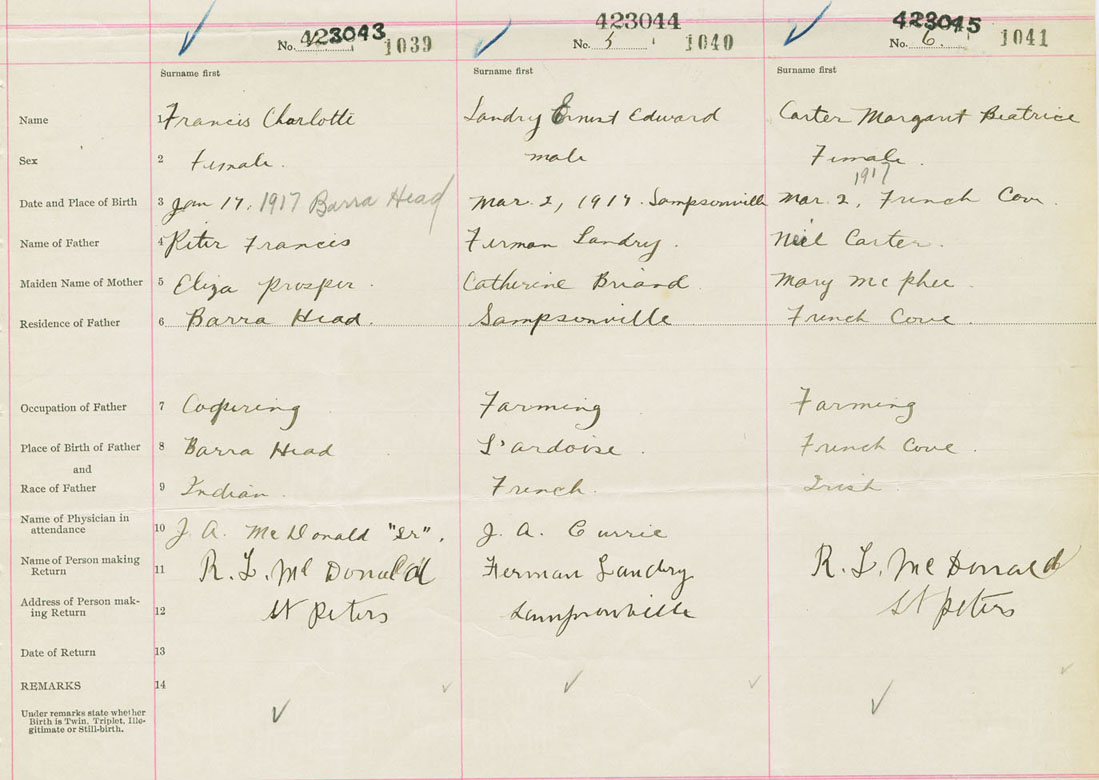 423043 423044 423045
No. 1039 No. 5 1040 No. 6 1041
Surname first Surname first Surname first
Name 1 Francis Charlotte Landry Ernest Edward Carter Margaret Beatrice
Sex 2 Female. male Female.
1917
Date and Place of Birth 3 Jan 17, 1917 Barra Head Mar. 2, 1917. Sampsonville Mar. 2, French Cove.
Name of Father 4 Peter Francis Firman Landry. Neil Carter.
Maiden Name of Mother 5 Eliza Prosper. Catherine Briand. Mary McPhee.
Residence of Father 6 Barra Head. Sampsonville French Cove.
Occupation of Father 7 Coopering Farming Farming
Place of Birth of Father 8 Barra Head L'ardoise. French Cove.
and
Race of Father 9 Indian. French. Irish
Name of Physician in
attendance 10 J. A. McDonald "Sr". J. A. Currie
Name of Person making
Return 11 R. L. McDonald Ferman Landry R. L. McDonald
Address of Person mak-
ing Return 12 St Peters Sampsonville St Peters
Date of Return 13
REMARKS 14
Under remarks state whether
Birth is Twin, Triplet, Ille-
gitimate or Still-birth.